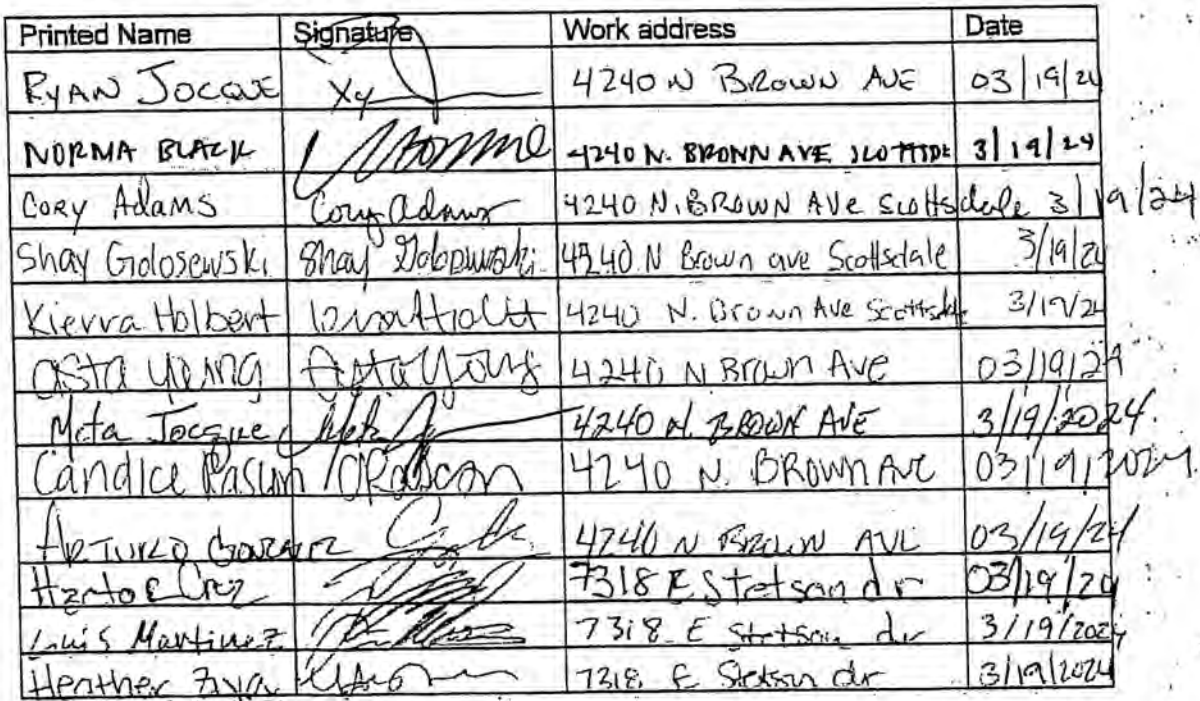 Printed Name Signature Work address Date
RYAN JOCQUE 4240 N BROWN AVE 03/19/24
NORMA BLACK 4240 N. BROWN AVE 3/19/24
CORY Adams Cory Adams 4240 N. BROWN AVe Scottsdale 3/19/24
Shay Golosewski Shay Golosewski 4240 N Brown ave Scottsdale 3/19/24
Kierra Holbert 4240 N. Brown Ave 3/19/24
asta young Asta Young 4240 N Brown AVE 03/19/24
Meta Jocque 4240 N. BROWN AVE 3/19/2024
Candice 4240 N. BROWN Ave 03/19/2024
ARTURO 4240 N BROWN AVE 03/19/24
Cruz 7318 E Stetson dr 03/19/24
Luis Martinez 7318 E Stetson dr 3/19/2024
Heather 7318 E Stetson dr 3/19/2024